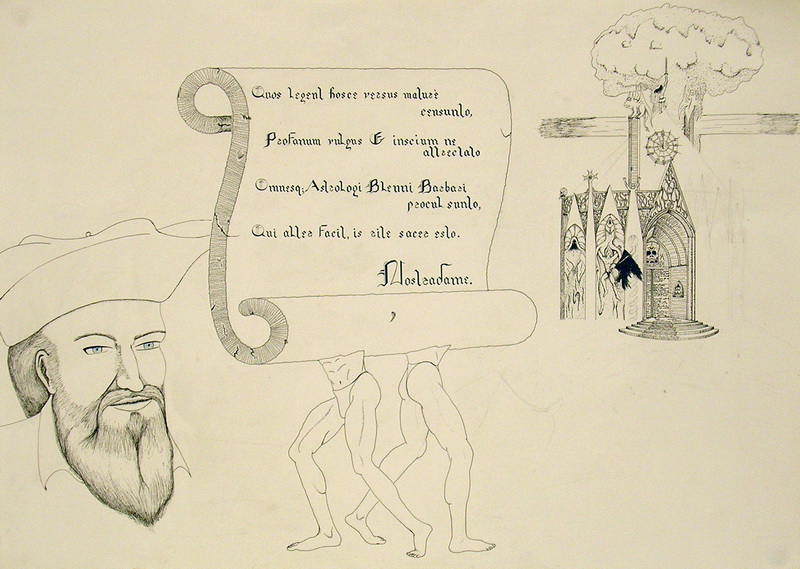 Quos legent hosce versus maturè
censunto,
Profanum vulgus & inscium ne
attrectato
Omnesq; Astrologi Blenni Barbari
procul sunto,
Qui alter facit, is rite sacer esto.
Nostradame.